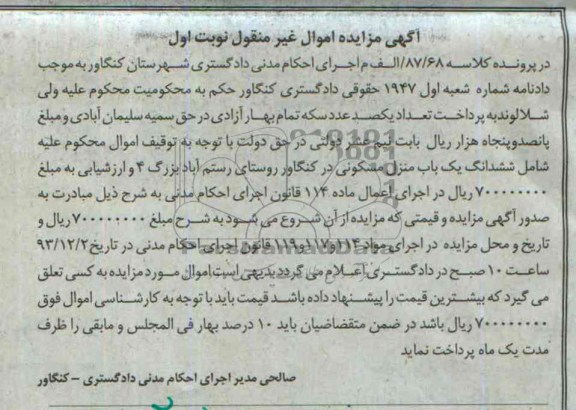 آگهی مزایده اموال غیر منقول نوبت اول
در پرونده کلاسه ۸۷/۶۸/الف م اجرای احکام مدنی دادگستری شهرستان کنگاور به موجب
دادنامه شماره شعبه اول ۱۹۴۷ حقوقی دادگستری کنگاور حکم به محکومیت محکوم علیه ولی
شلالوند به پرداخت تعداد یکصد عدد سکه تمام بهار آزادی در حق سمیه سلیمان آبادی و مبلغ
پانصد و پنجاه هزار ریال بابت نیم عشر دولتی در حق دولت با توجه به توقیف اموال محکوم علیه
شامل ششدانگ یک باب منزل مسکونی در کنگاور روستای رستم آباد بزرگ ۴ و ارزشیابی به مبلغ
۷۰۰۰۰۰۰۰۰ ریال در اجرای اعمال ماده ۱۱۴ قانون اجرای احکام مدنی به شرح ذیل مبادرت به
صدور آگهی مزایده و قیمتی که مزایده از آن شروع می شود به شرح مبلغ ۷۰۰۰۰۰۰۰۰ ریال و
تاریخ و محل مزایده در اجرای مواد ۱۱۴ و ۱۱۷ و ۱۱۹ قانون اجرای احکام مدنی در تاریخ ۹۳/۱۲/۲
ساعت ۱۰ صبح در دادگستری اعلام می گردد بدیهی است اموال مورد مزایده به کسی تعلق
می گیرد که بیشترین قیمت را پیشنهاد داده باشد قیمت باید با توجه به کارشناسی اموال فوق
۷۰۰۰۰۰۰۰۰ ریال باشد در ضمن متقضاصیان باید ۱۰ درصد بهار فی المجلس و مابقی را ظرف
مدت یک ماه پرداخت نماید
صالحی مدیر اجرای احکام مدنی دادگستری – کنگاور